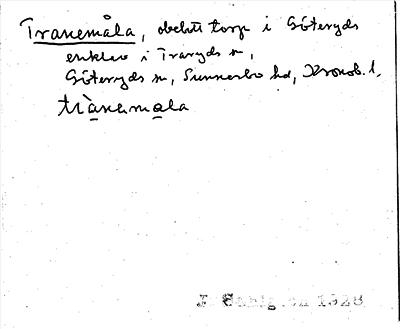 Tranemåla, obebott torp i Göteryds
enklav i Traryds sn,
Göteryds sn, Sunnerbo hd, Kronob. l.
trànamåla
J 1928